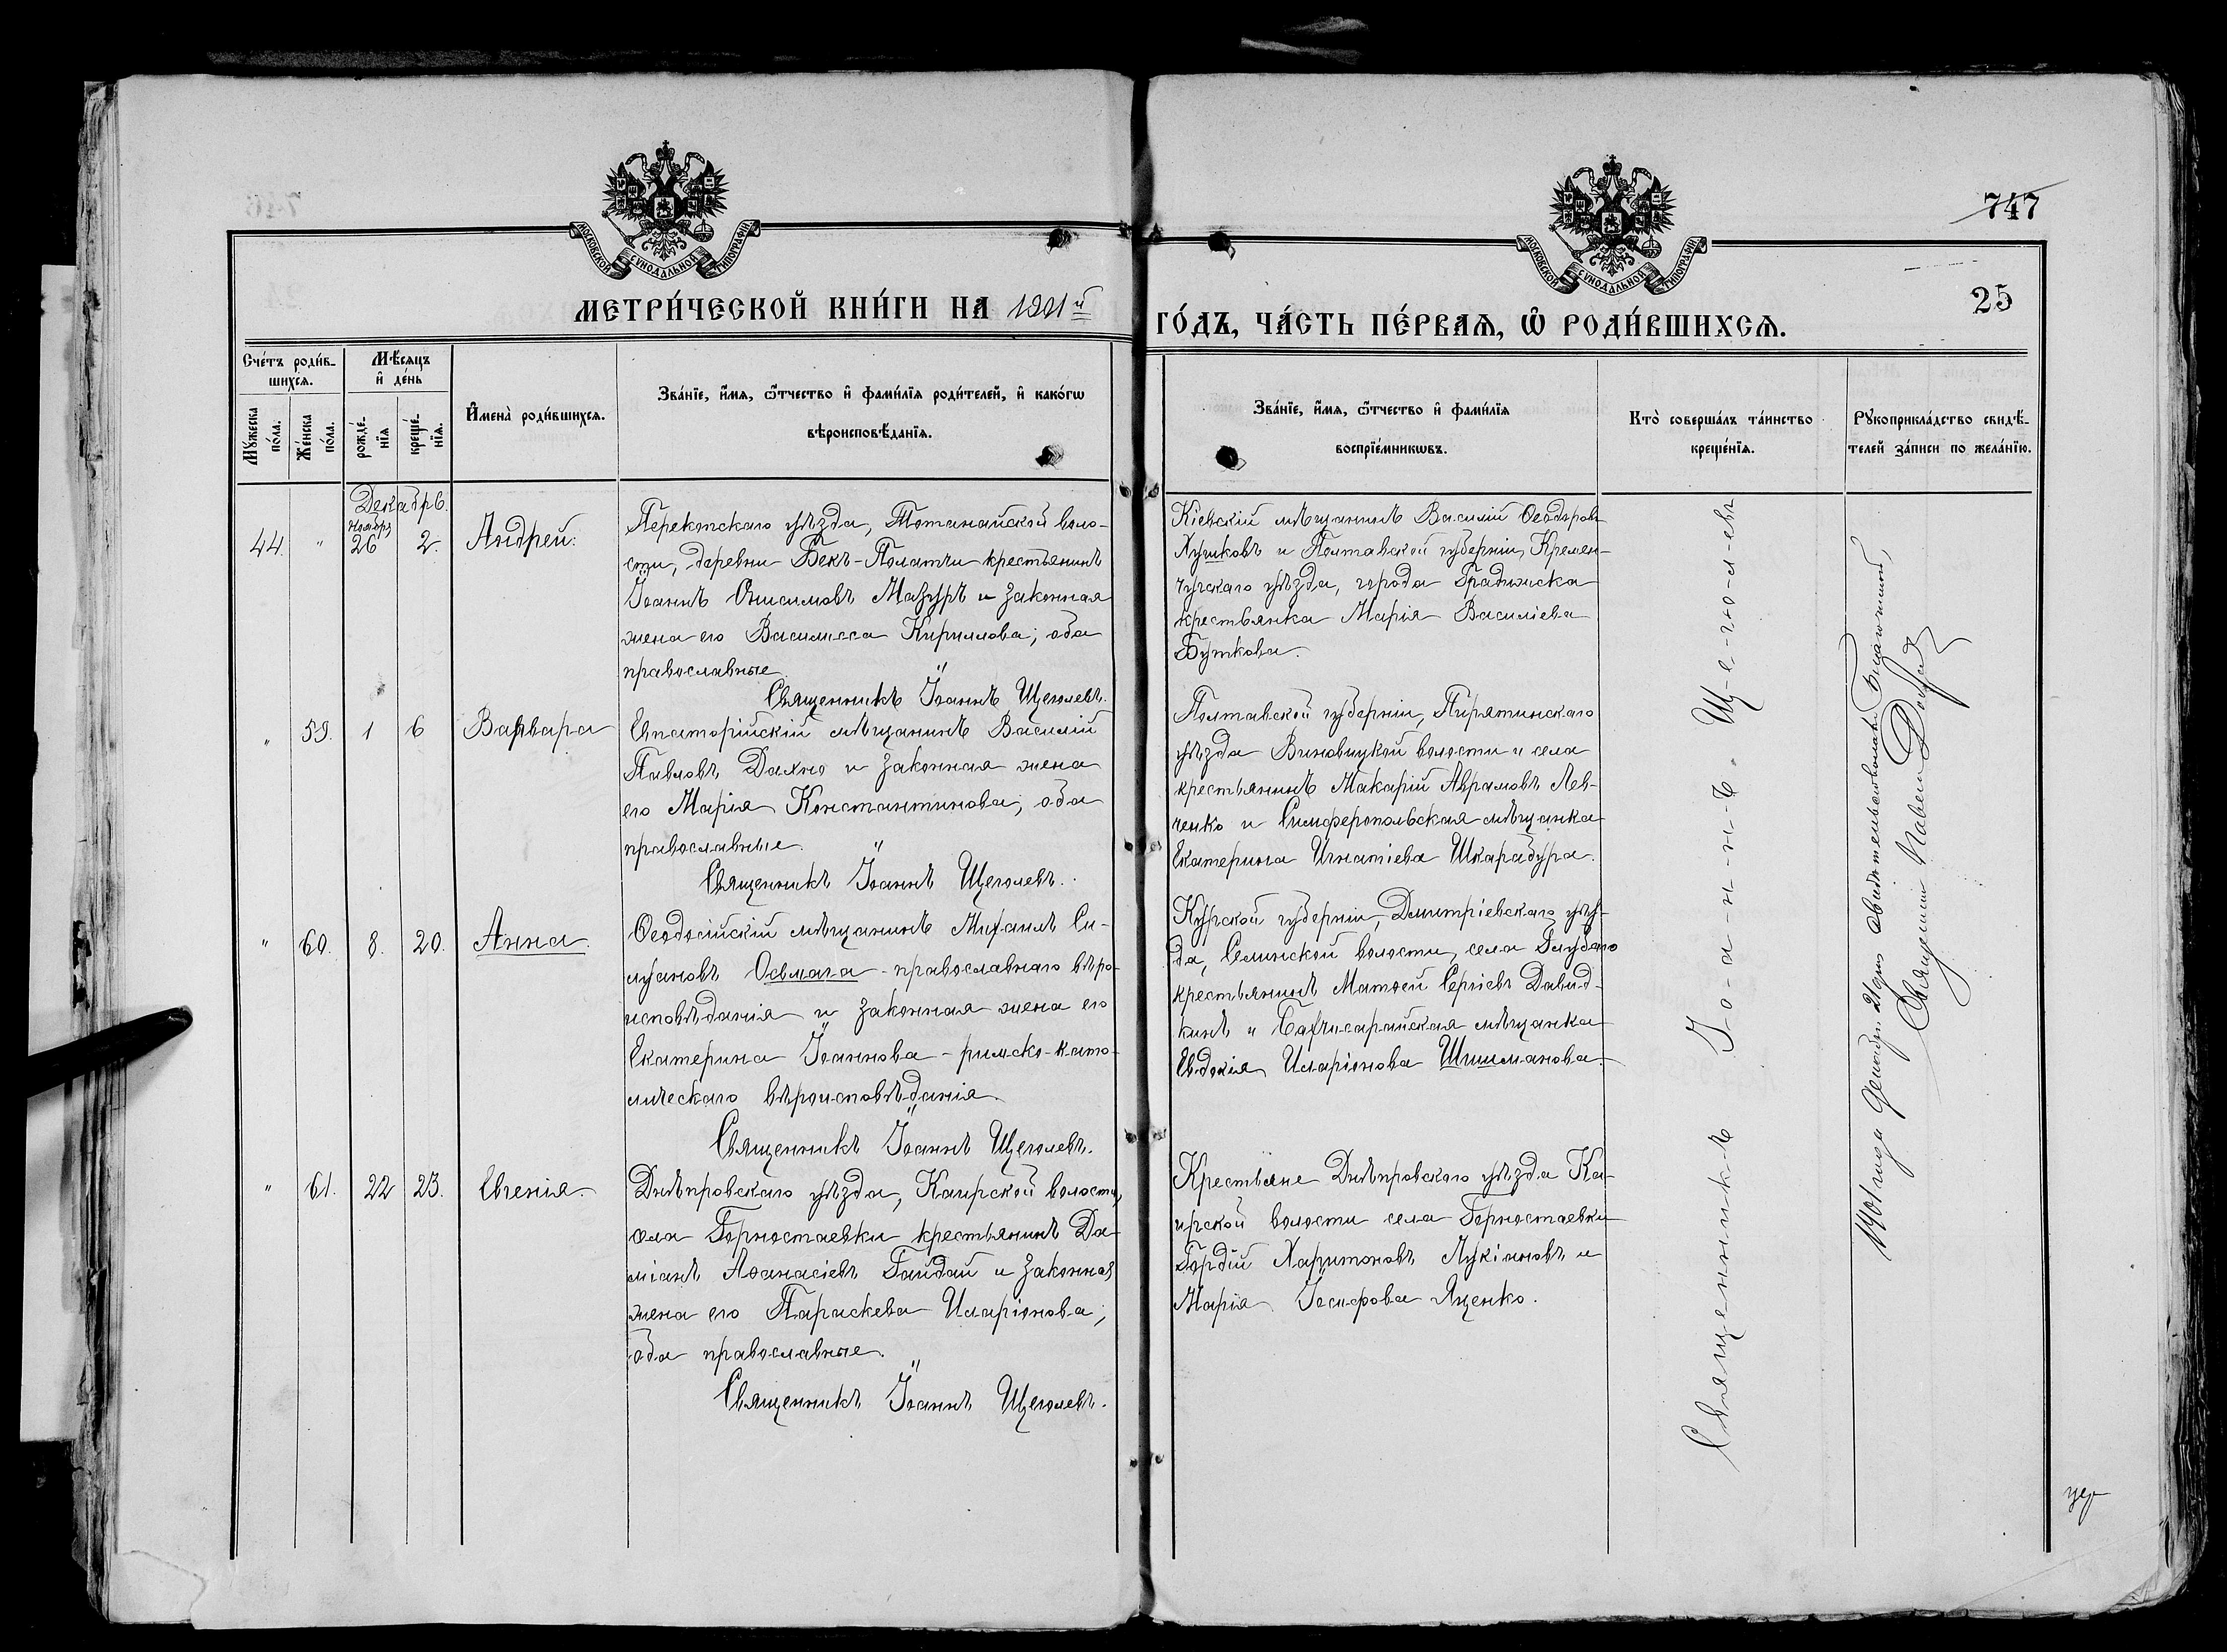 747
25
МОСКОВСКОЙ СѴНОДАЛЬНОЙ ТИПОГРАФІИ.
МОСКОВСКОЙ СѴНОДАЛЬНОЙ ТИПОГРАФІИ.
МЕТРИ́ЧЕСКОЙ КНИ́ГИ НА 1901й
ГО́ДЪ, ЧА́СТЬ ПЕ́РВАѦ, Ѽ РОДИ́ВШИХСѦ.
Сче́тъ роди́в-
шихсѧ.
Мꙋ́жеска по́ла.
Же́нска по́ла.
Мѣ́сѧцъ
и҆ де́нь
рожде́-
нїѧ
креще́-
нїѧ.
И҆мена̀ роди́вшихсѧ.
Зва́нїе, и҆́мѧ, ѻ҆́тчество и҆ фами́лїѧ роди́телей, и҆ како́гѡ
вѣроисповѣ́данїѧ.
Зва́нїе, и҆́мѧ, ѻ҆́тчество и҆ фами́лїѧ
воспрїе́мникѡвъ.
Кто̀ соверша́лъ та́инство
креще́нїѧ.
Рꙋкоприкла́дство свидѣ́-
телей за́писи по жела́нїю.
Декабрь.
44. " Ноября 26 2. Андрей.
Перекопскаго уѣзда, Тотанайской воло-
сти, деревни Бекъ-Полатчи крестьянинъ
Іоаннъ Онисимовъ Мазуръ и законная
жена его Василисса Кириллова; оба
православные.
Священникъ Іоаннъ Щеголевъ.
Кіевскій мѣщанинъ Василій Ѳеодоровъ
Лушковъ и Полтавской губерніи, Кремен-
чугскаго уѣзда, города Градижска
крестьянка Марія Василіева
Буткова.
" 59. 1 6 Варвара
Евпаторійскій мѣщанинъ Василій
Павловъ Дахно и законная жена
его Марія Константинова; оба
православные.
Священникъ Іоаннъ Щеголевъ.
Полтавской губерніи, Пирятинскаго
уѣзда Виновицкой волости и села
крестьянинъ Макарій Аврамовъ Лев-
ченко и Симферопольская мѣщанка
Екатерина Игнатіева Шкарабура.
" 60. 8. 20. Анна.
Ѳеодосійскій мѣщанинъ Михаилъ Си-
луановъ Осьмага - православнаго вѣро-
исповѣданія и законная жена его
Екатерина Іоаннова - римско-като-
лическаго вѣроисповѣданія.
Священникъ Іоаннъ Щеголевъ.
Курской губерніи, Дмитріевскаго уѣз-
да, Селинской волости, села Глубаго
крестьянинъ Матѳей Сергіевъ Давид-
кинъ и Бахчисарайская мѣщанка
Евдокія Иларіонова Шишманова.
" 61. 22 23. Евгенія.
Днѣпровскаго уѣзда, Каирской волости,
села Горностаевки крестьянинъ Да-
міанъ Аѳанасіевъ Гайдай и законная
жена его Параскева Иларіонова;
оба православные.
Священникъ Іоаннъ Щеголевъ.
Крестьяне Днѣпровскаго уѣзда Ка-
ирской волости села Горностаевки
Гордій Харитоновъ Лукіановъ и
Марія Іосифова Яценко.
Священникъ Іо-а-н-н-ъ. Ще-го-л-евъ
1901 года Декабря 21 дня свидѣтельствовалъ Благочинный,
Священникъ Павелъ